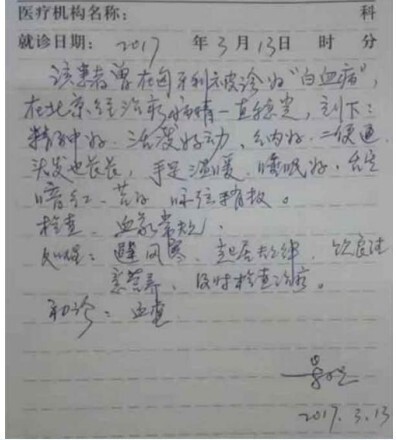 医疗机构名称: 科
就诊日期: 2017 年 3 月 13 日 时 分
该患者曾在匈牙利被诊为"白血病",
在北京经治疗病情一直稳定,刻下:
精神好、活泼好动、纳好、二便通
头发也长长,手足温暖、睡眠好、舌
暗红、苔
检查 血尿常规,
处理:避风寒、起居规律、饮食
营养、及时检查治疗。
初诊:
2017.3.13